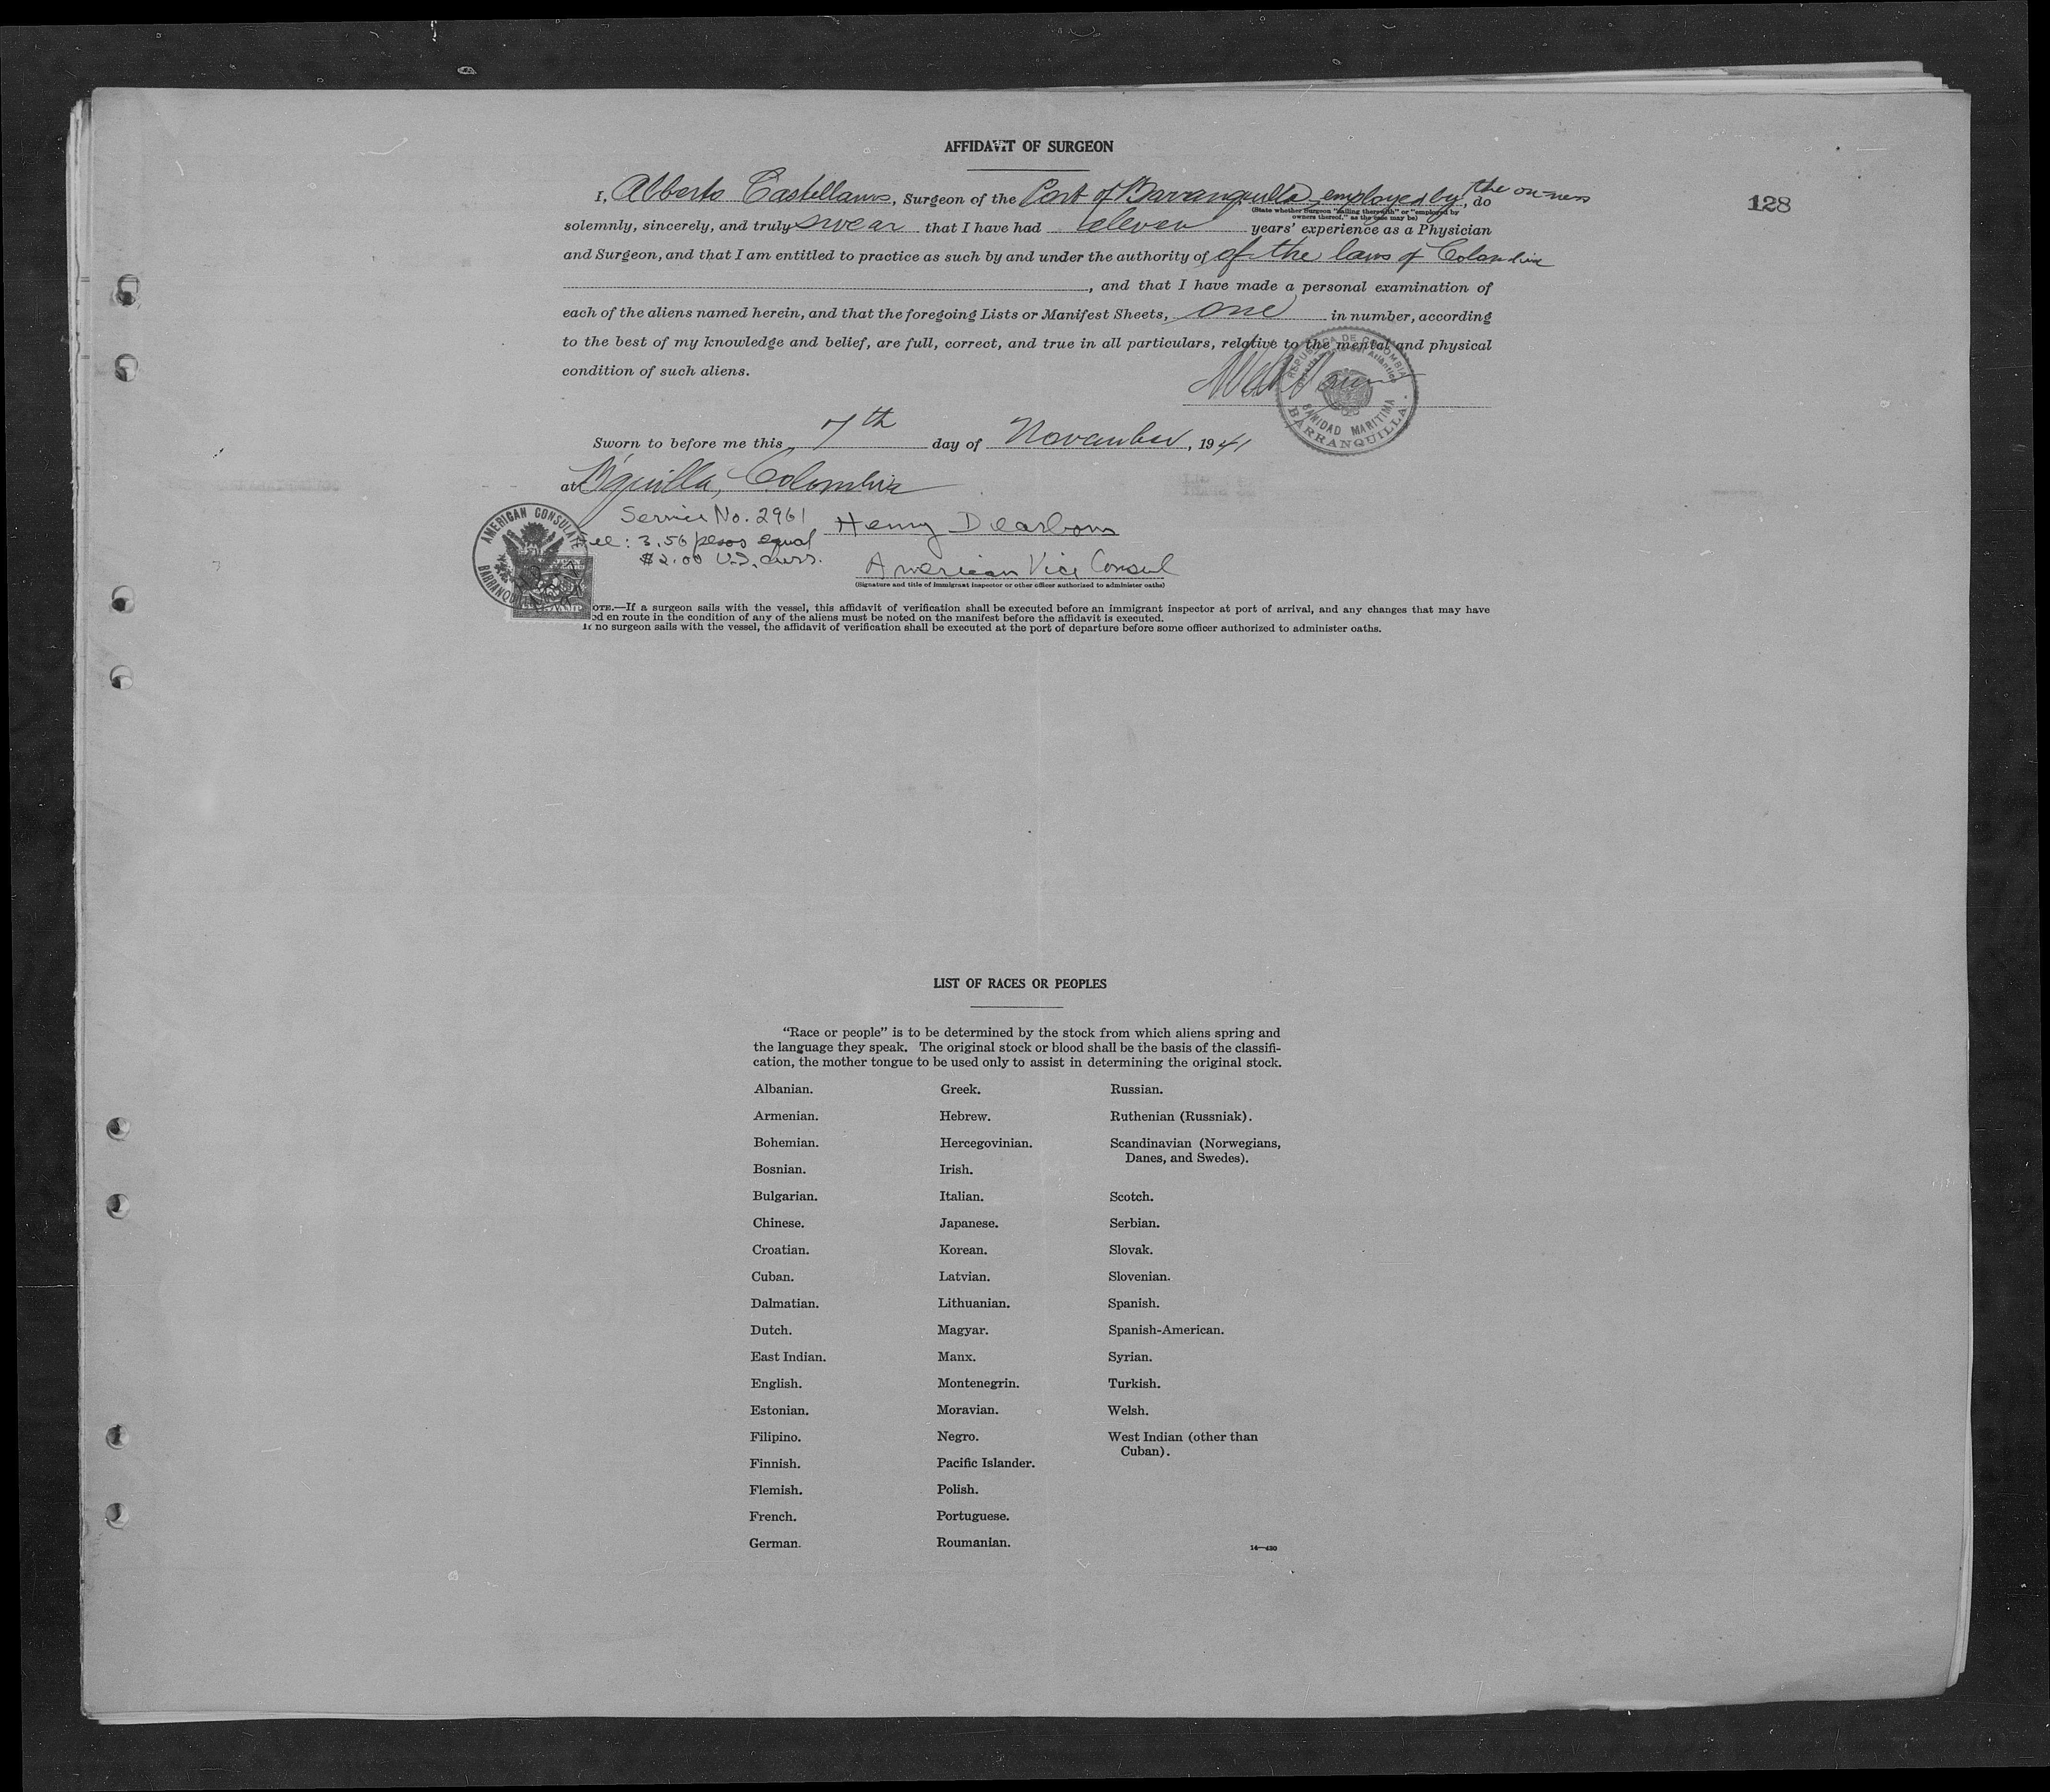 AFFIDAVIT OF SURGEON
128
I, Alberto Castellanos, Surgeon of the Port of Barranquilla, employed by the owners, do
(State whether Surgeon "sailing therewith" or "employed by
owners thereof," as the case may be)
solemnly, sincerely, and truly swear that I have had eleven years' experience as a Physician
and Surgeon, and that I am entitled to practice as such by and under the authority of of the laws of Colombia
, and that I have made a personal examination of
each of the aliens named herein, and that the foregoing Lists or Manifest Sheets, one in number, according
to the best of my knowledge and belief, are full, correct, and true in all particulars, relative to the mental and physical
condition of such aliens.
REPUBLICA DE COLOMBIA
SANIDAD MARITIMA
BARRANQUILLA
Sworn to before me this 7th day of November, 1941
at B'quilla, Colombia
Service No. 2961
Henry Dearborn
Fee: 3.50 pesos equal
$2.00 U.S. curr.
American Vice Consul
(Signature and title of immigrant inspector or other officer authorized to administer oaths)
AMERICAN CONSULATE
STAMP
OTE.—If a surgeon sails with the vessel, this affidavit of verification shall be executed before an immigrant inspector at port of arrival, and any changes that may have
ed en route in the condition of any of the aliens must be noted on the manifest before the affidavit is executed.
If no surgeon sails with the vessel, the affidavit of verification shall be executed at the port of departure before some officer authorized to administer oaths.
LIST OF RACES OR PEOPLES
"Race or people" is to be determined by the stock from which aliens spring and
the language they speak. The original stock or blood shall be the basis of the classifi-
cation, the mother tongue to be used only to assist in determining the original stock.
Albanian.
Armenian.
Bohemian.
Bosnian.
Bulgarian.
Chinese.
Croatian.
Cuban.
Dalmatian.
Dutch.
East Indian.
English.
Estonian.
Filipino.
Finnish.
Flemish.
French.
German.
Greek.
Hebrew.
Hercegovinian.
Irish.
Italian.
Japanese.
Korean.
Latvian.
Lithuanian.
Magyar.
Manx.
Montenegrin.
Moravian.
Negro.
Pacific Islander.
Polish.
Portuguese.
Roumanian.
Russian.
Ruthenian (Russniak).
Scandinavian (Norwegians,
Danes, and Swedes).
Scotch.
Serbian.
Slovak.
Slovenian.
Spanish.
Spanish-American.
Syrian.
Turkish.
Welsh.
West Indian (other than
Cuban).
14—430